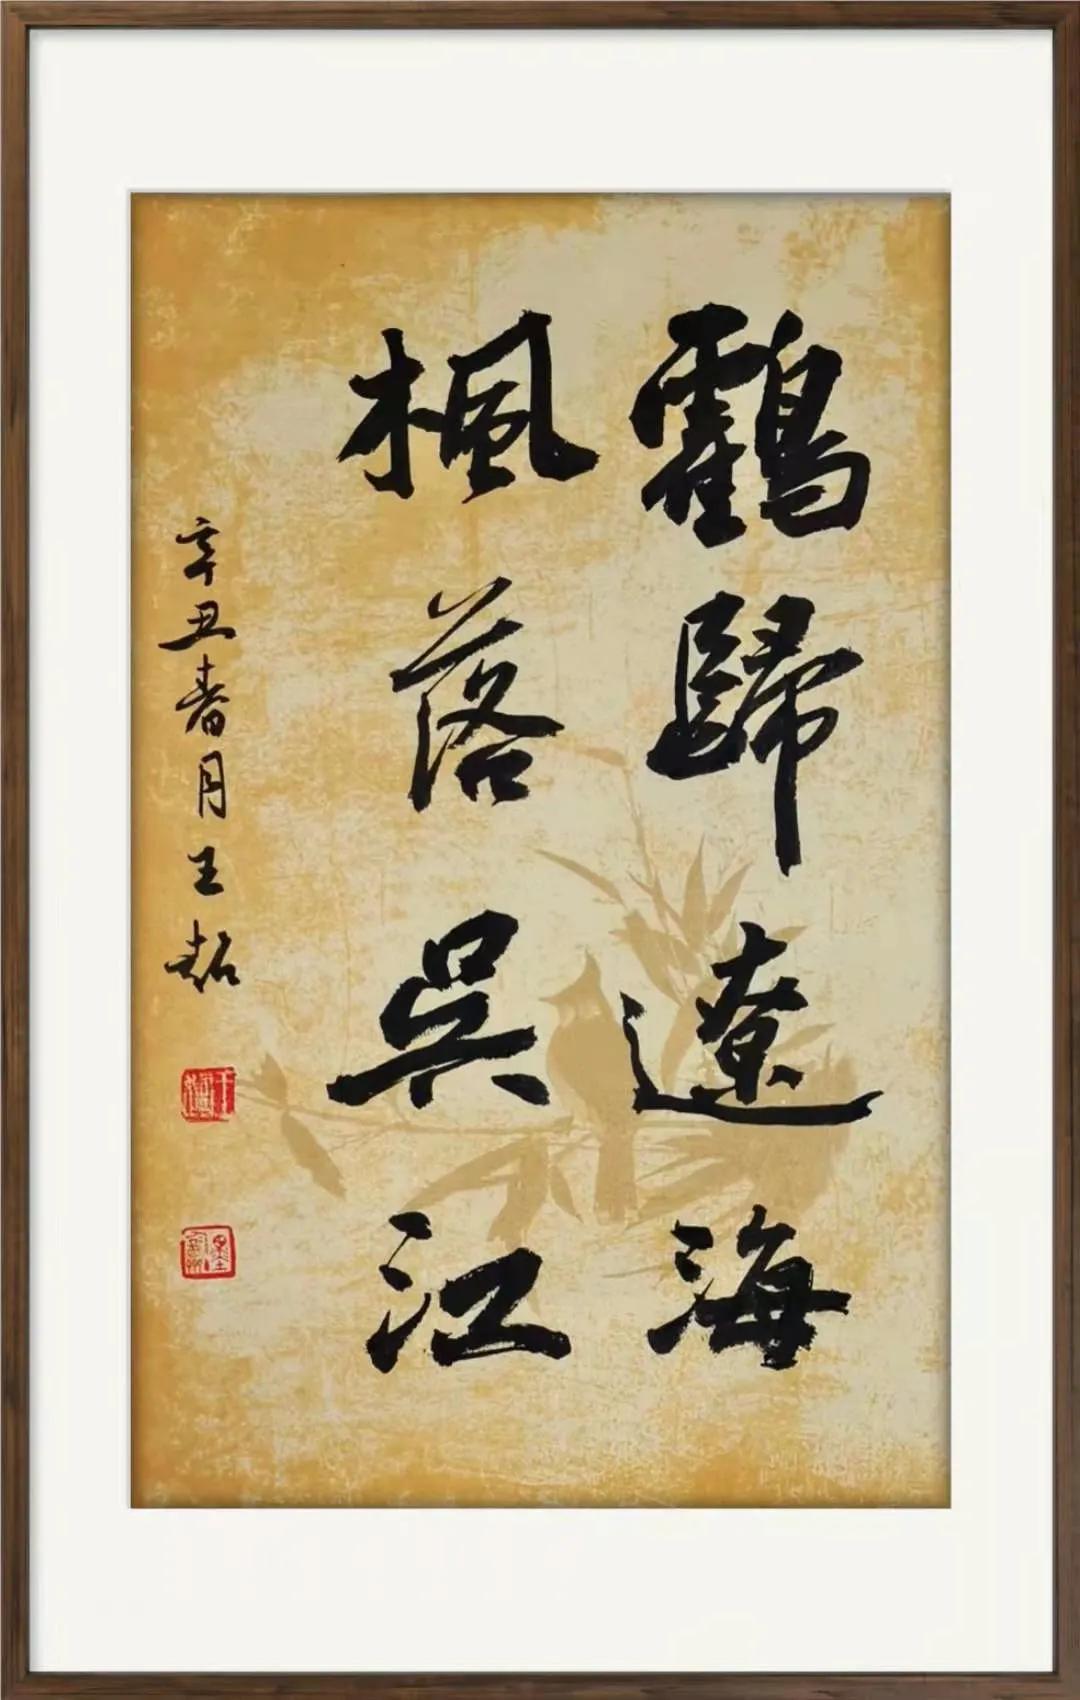 鶴歸遼海
楓落吳江
辛丑春月王超